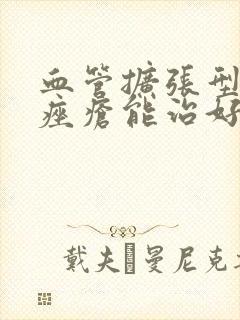 血管擴張型
痤瘡能治好
戴夫·曼尼克